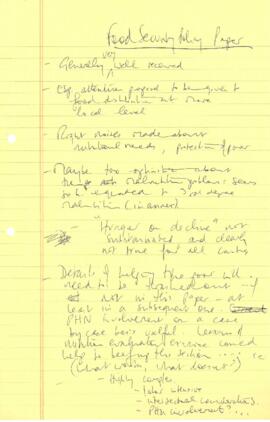 Food Security Policy Paper
- Generally very well received
- attention to be given to
food distribution at more
local level
- Right noises made about
nutritional needs, protection of poor
- Maybe too optimistic about
the malnutrition problem: seems
to be equated to 3rd degree
malnutrition
- "Hunger on decline" not
substantiated and clearly
not true for all
- Details of helping the poor will
need to be out - if
not in this paper - at
least in a subsequent one.
PHN involvement on a case
by case basis useful.
nutrition evaluation could
help to this section
(what works, what doesn't)
- Highly complex
- labor intensive
- intersectoral considerations.
- PHN involvement?...